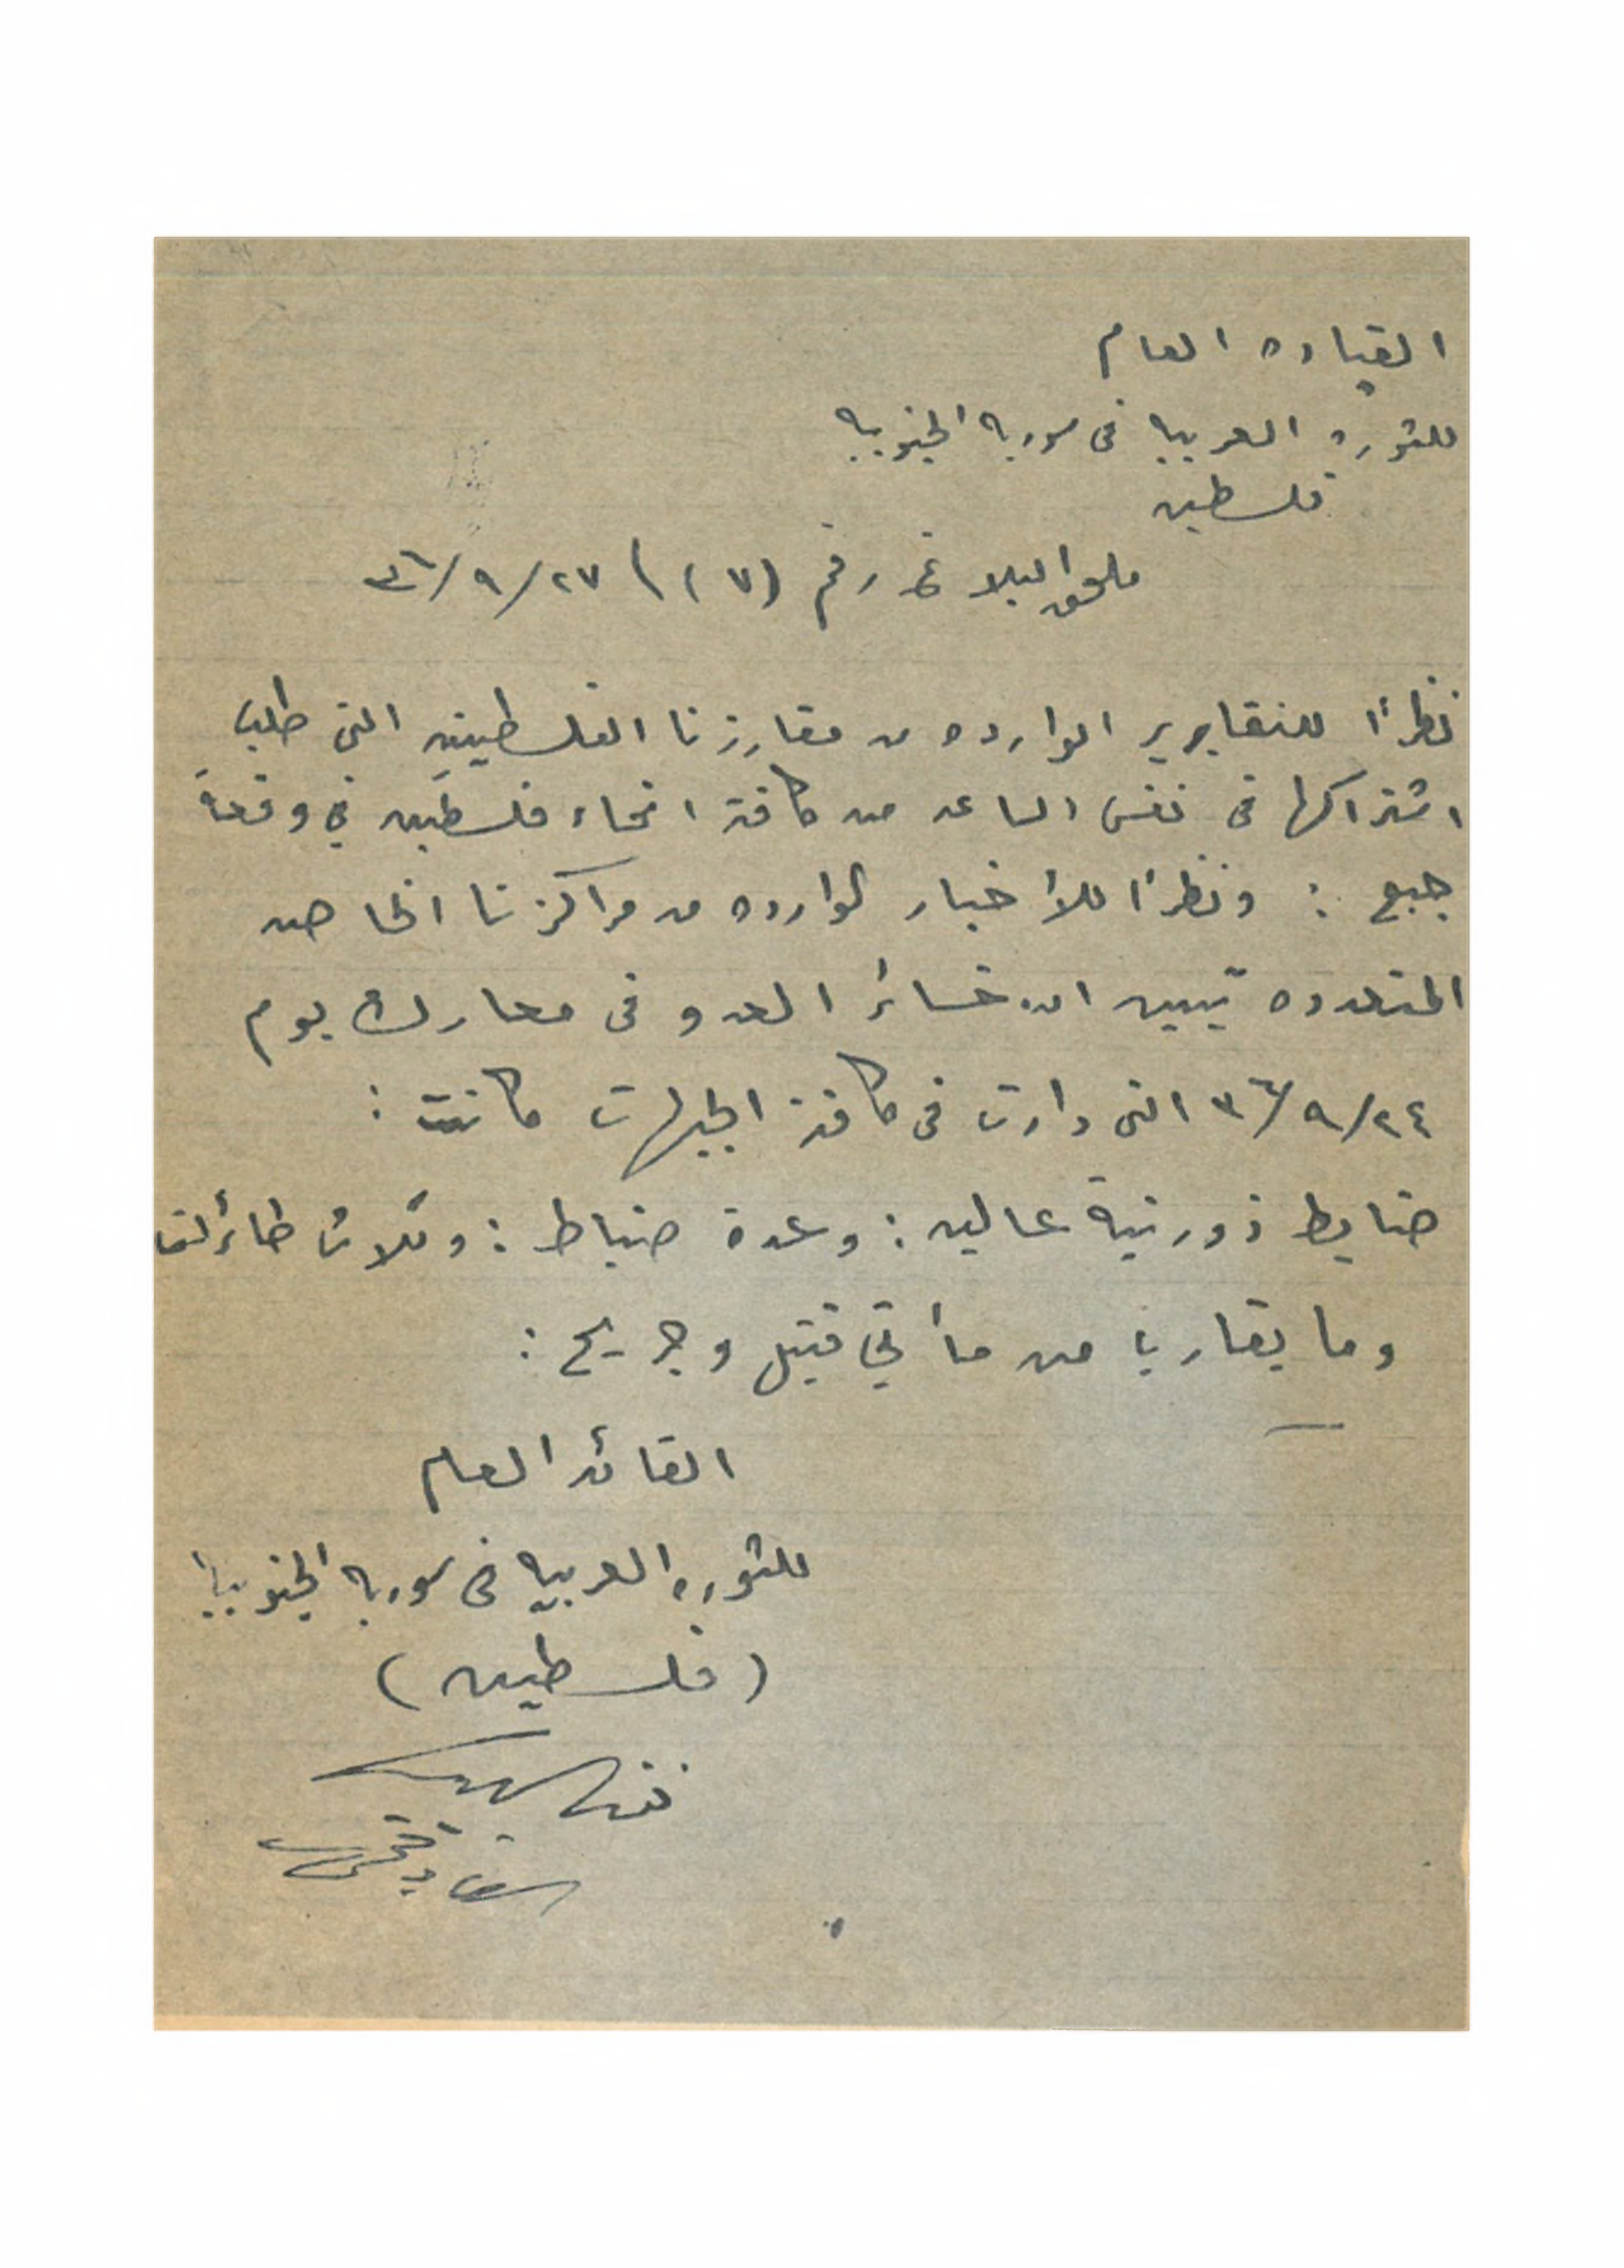 القياده العام
للثوره العربيه فى سوريه الجنوبيه
فلسطين
ملحق البلاغ رقم (١٧) ٢٧/٩/٣٦
نظراً للتقارير الوارده من مفارزنا الفلسطينيه التى طلب
اشتراكها فى نفس الساعه من كافة انحاء فلسطين في وقعة
جبع : ونظراً للأخبار الوارده من مراكزنا الخاصه
المتعدده تبين ان خسائر العدو فى معارك يوم
٢٤/٩/٣٦ التى دارت فى كافة الجبهات كانت :
ضابط ذو رتبة عاليه : وعدة ضباط : وثلاث طائرات
وما يقارب من مأتي قتيل وجريح :
القائد العام
للثوره العربيه فى سوريه الجنوبيه
(فلسطين)
فوزالدين
القاوقجى